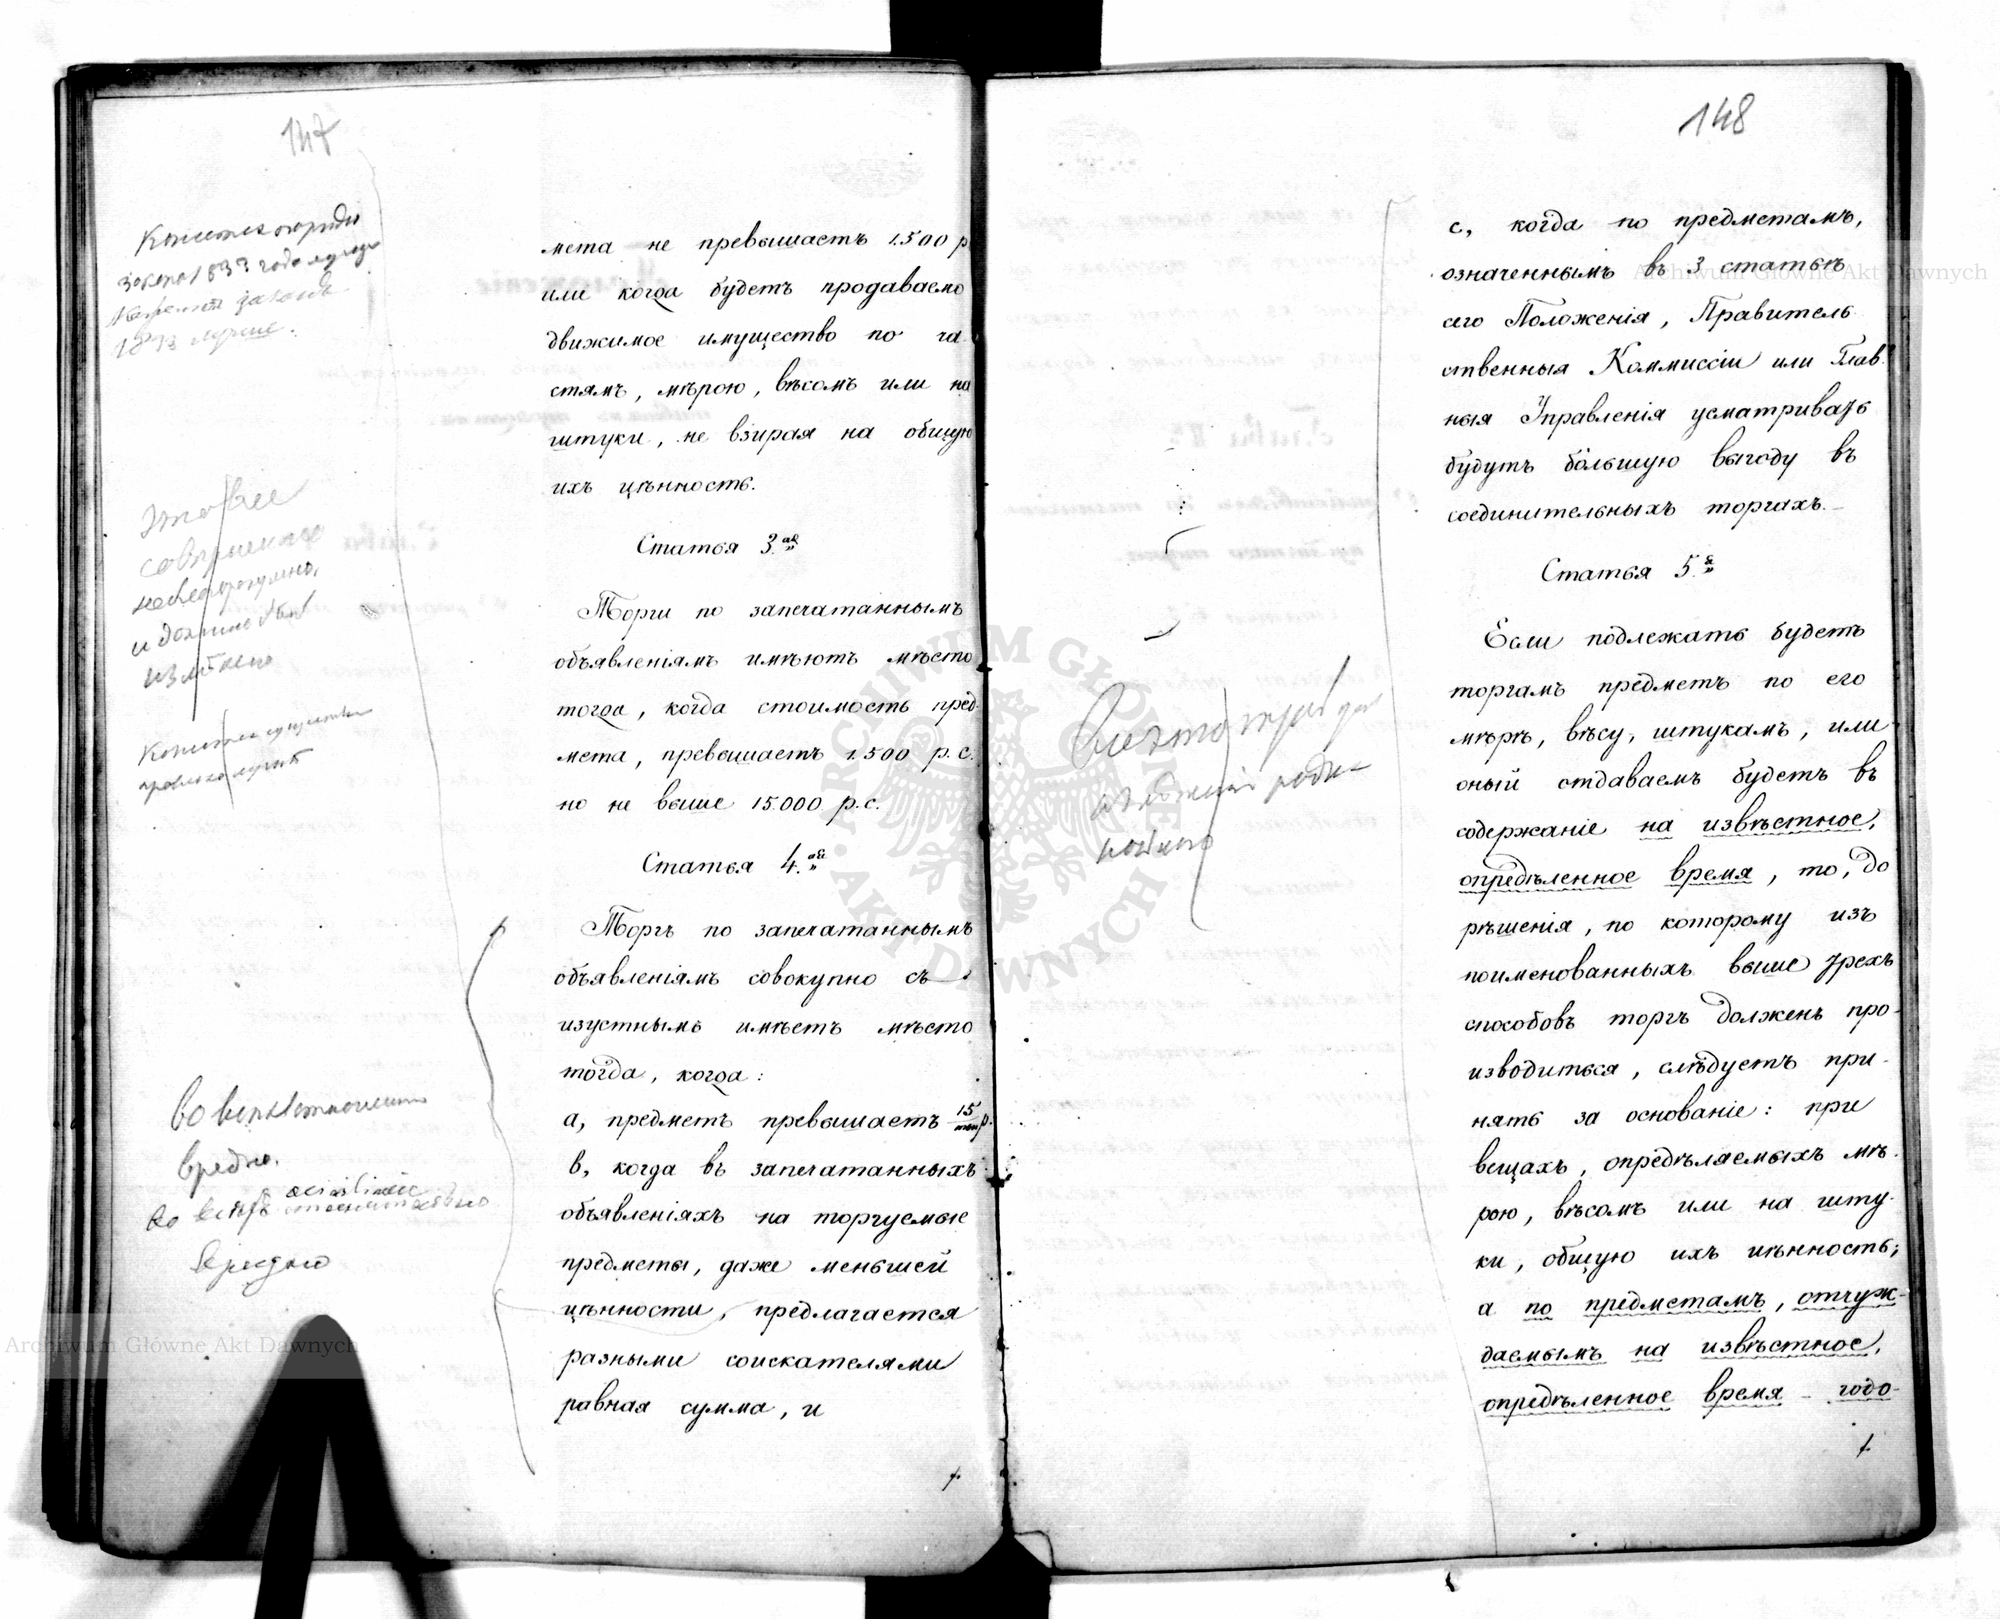 147
мета не превышаетъ 1.500 р
или когда будетъ продаваемо
движимое имущество по ча-
стямъ, мѣрою, вѣсомъ или на
штуки, не взирая на общую
ихъ цѣнность.
Статья 3.ая
Торги по запечатаннымъ
объявленіямъ имѣютъ мѣсто
тогда, когда стоимость пред-
мета, превышаетъ 1.500 р. с.
но не выше 15.000 р. с.
Статья 4.ая
Торгъ по запечатаннымъ
объявленіямъ совокупно съ
изустнымъ имѣетъ мѣсто
тогда, когда:
а, предметъ превышаетъ 15 тыс р.
в, когда въ запечатанныхъ
объявленіяхъ на торгуемые
предметы, даже меньшей
цѣнности, предлагается
разными соискателями
равная сумма, и
Это все
совершенно
и должно быть
измѣнено
вредно.
вредно
148
с, когда по предметамъ,
означеннымъ въ 3 статьѣ
сего Положенія, Правитель-
ственныя Коммиссіи или Глав-
ныя Управленія усматривать
будутъ большую выгоду въ
соединительныхъ торгахъ.
Статья 5.я
Если подлежать будетъ
торгамъ предметъ по его
мѣрѣ, вѣсу, штукамъ, или
оный отдаваемъ будетъ въ
содержаніе на извѣстное,
опредѣленное время, то, до
рѣшенія, по которому изъ
поименованныхъ выше трехъ
способовъ торгъ долженъ про-
изводиться, слѣдуетъ при-
нять за основаніе: при
вещахъ, опредѣляемыхъ мѣ-
рою, вѣсомъ или на шту-
ки, общую ихъ цѣнность;
а по предметамъ, отчуж-
даемымъ на извѣстное,
опредѣленное время – годо-
Archiwum Główne Akt Dawnych
ARCHIWUM GŁÓWNE AKT DAWNYCH
Archiwum Główne Akt Dawnych